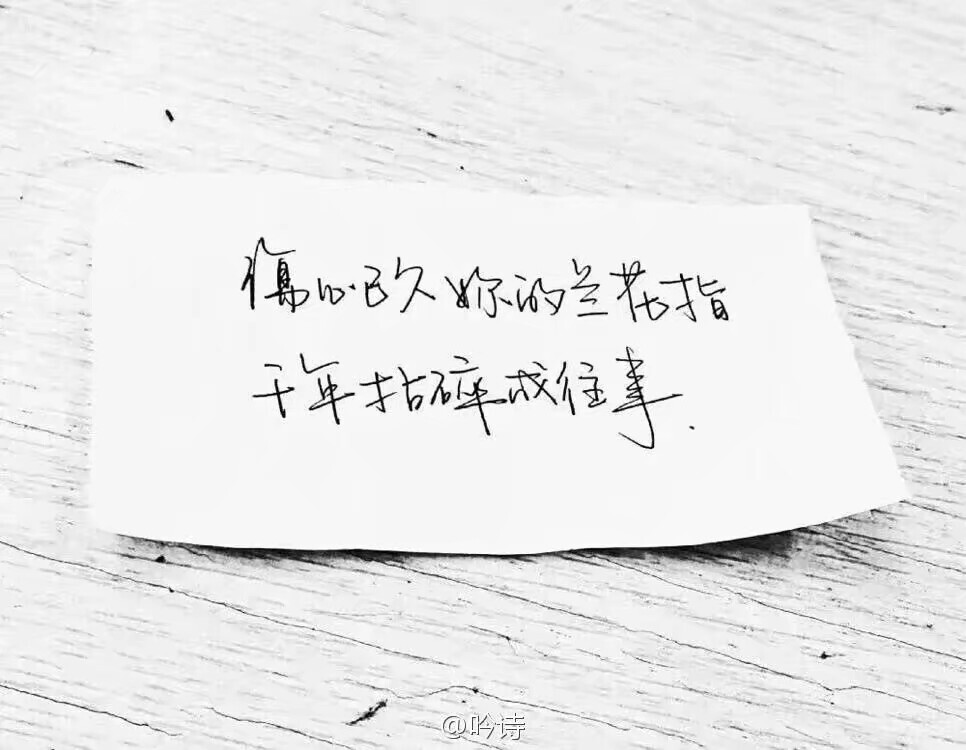 傷心已久妳的兰花指
千年拈碎成往事.
@吟诗